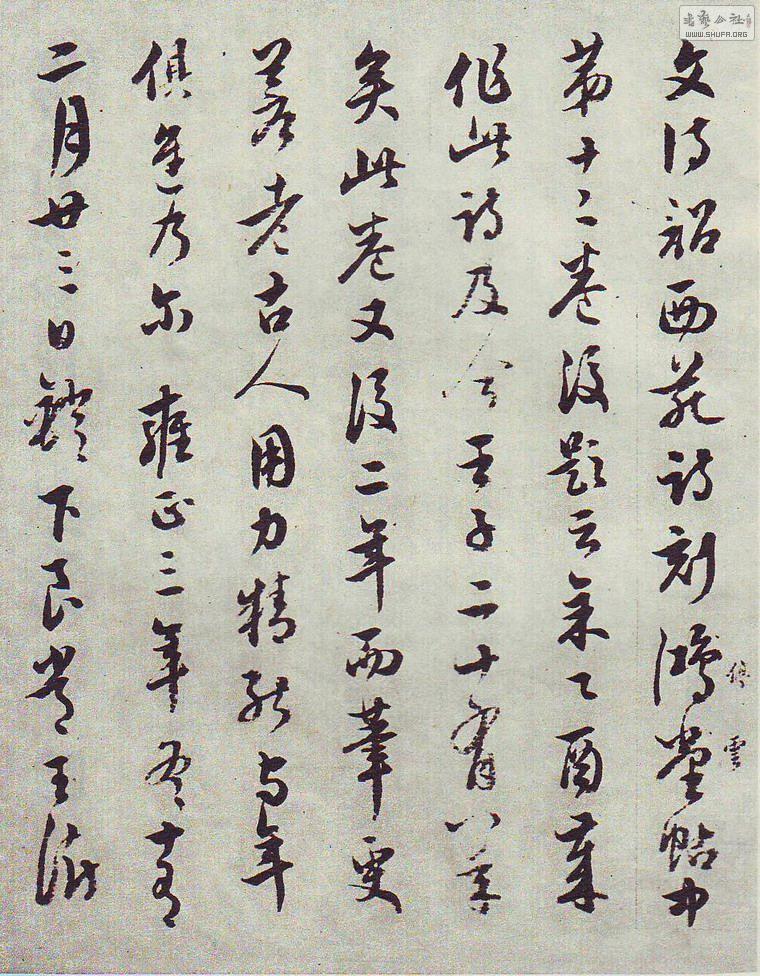 書藝公社
WWW.SHUFA.ORG
文待詔西苑詩刻鴻堂帖中
停雲
第十二卷後題云余乙酉歲
作此詩及今壬子二十有八年
矣此卷又後二年而筆更
蒼老古人用力精能与年
俱進乃尔 雍正三年冬十有
二月廿三日鐙下良常王澍